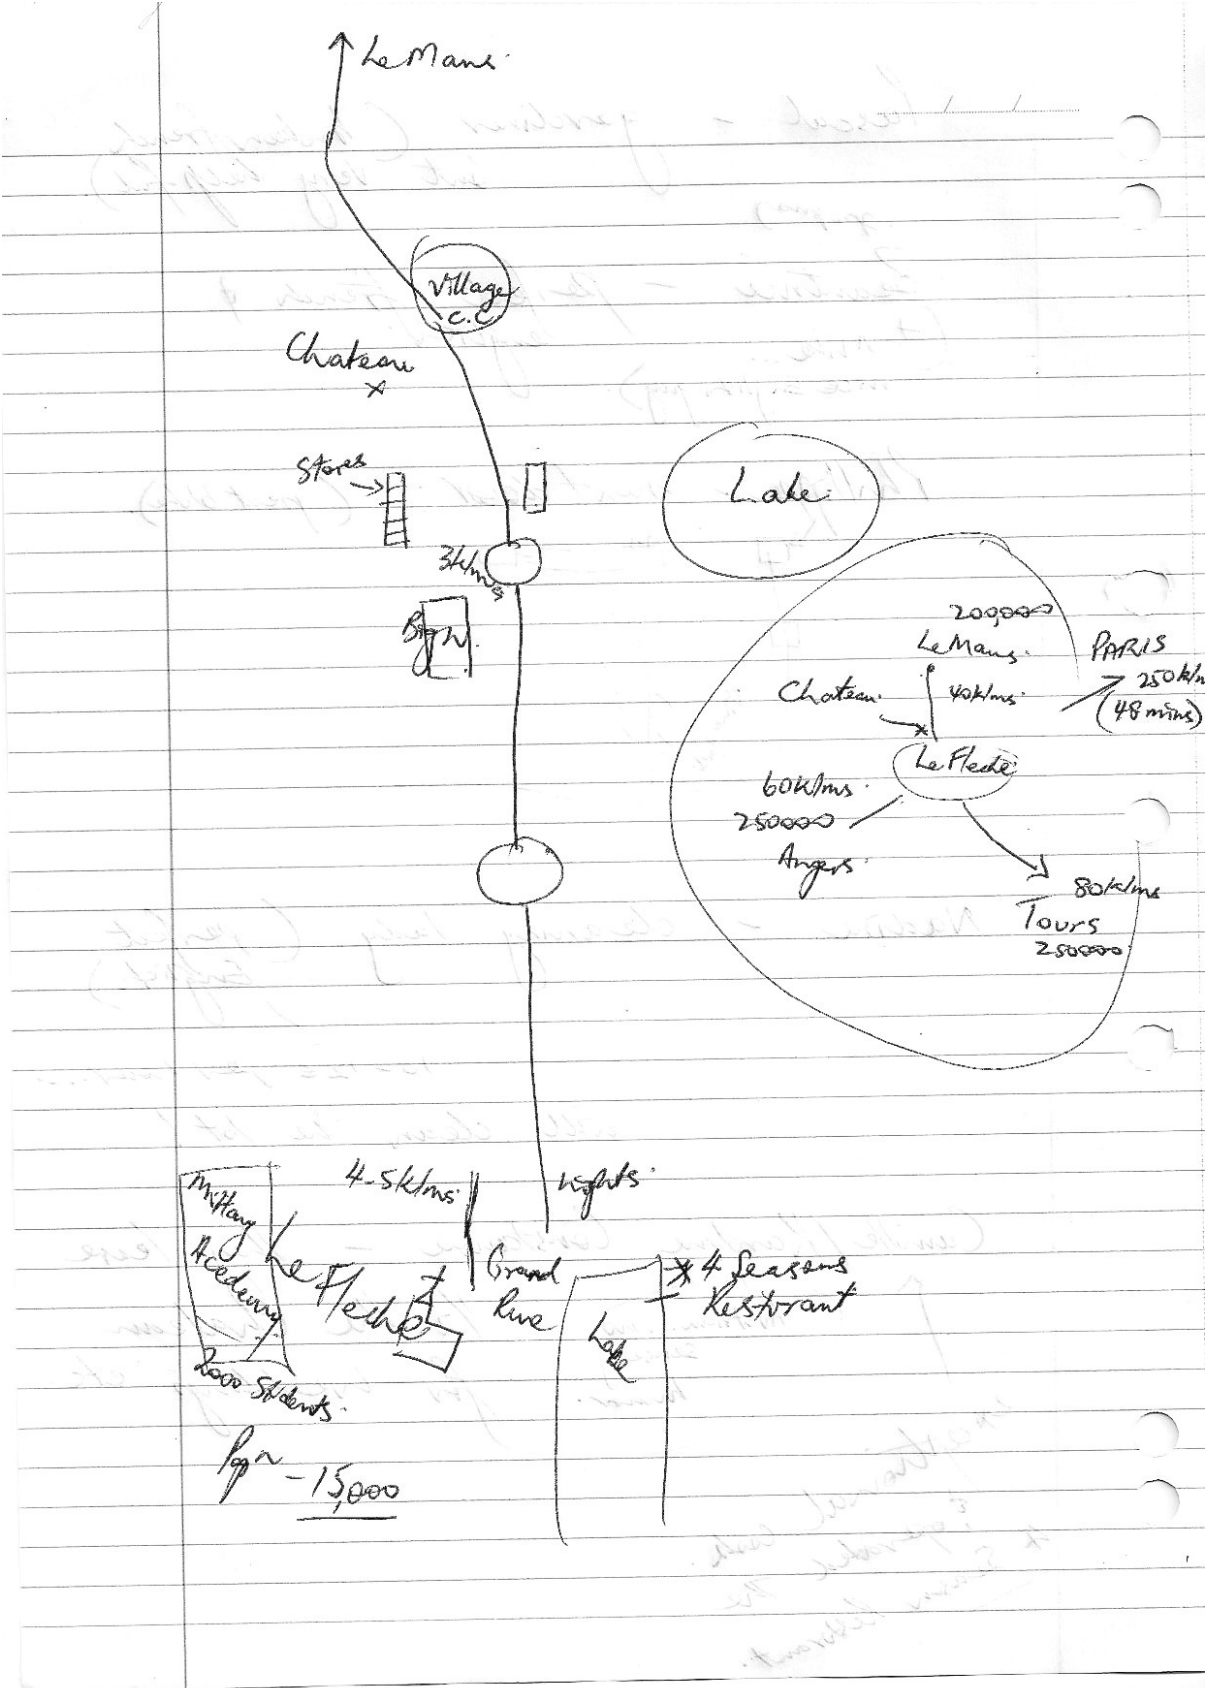 Le Mans.
Village
C.C.
Chateau
Stores
Lake
3klms
200,000
Le Mans.
PARIS
250 klm
(48 mins)
Chateau.
40klms.
Le Fleche
60klms.
250000
Angers.
80klms
Tours
250000
4-5klms.
Lights.
Military
Academy
Le Fleche
Grand
Rue
4 Seasons
Restirant
Lake
2000 Students.
Popn -15,000